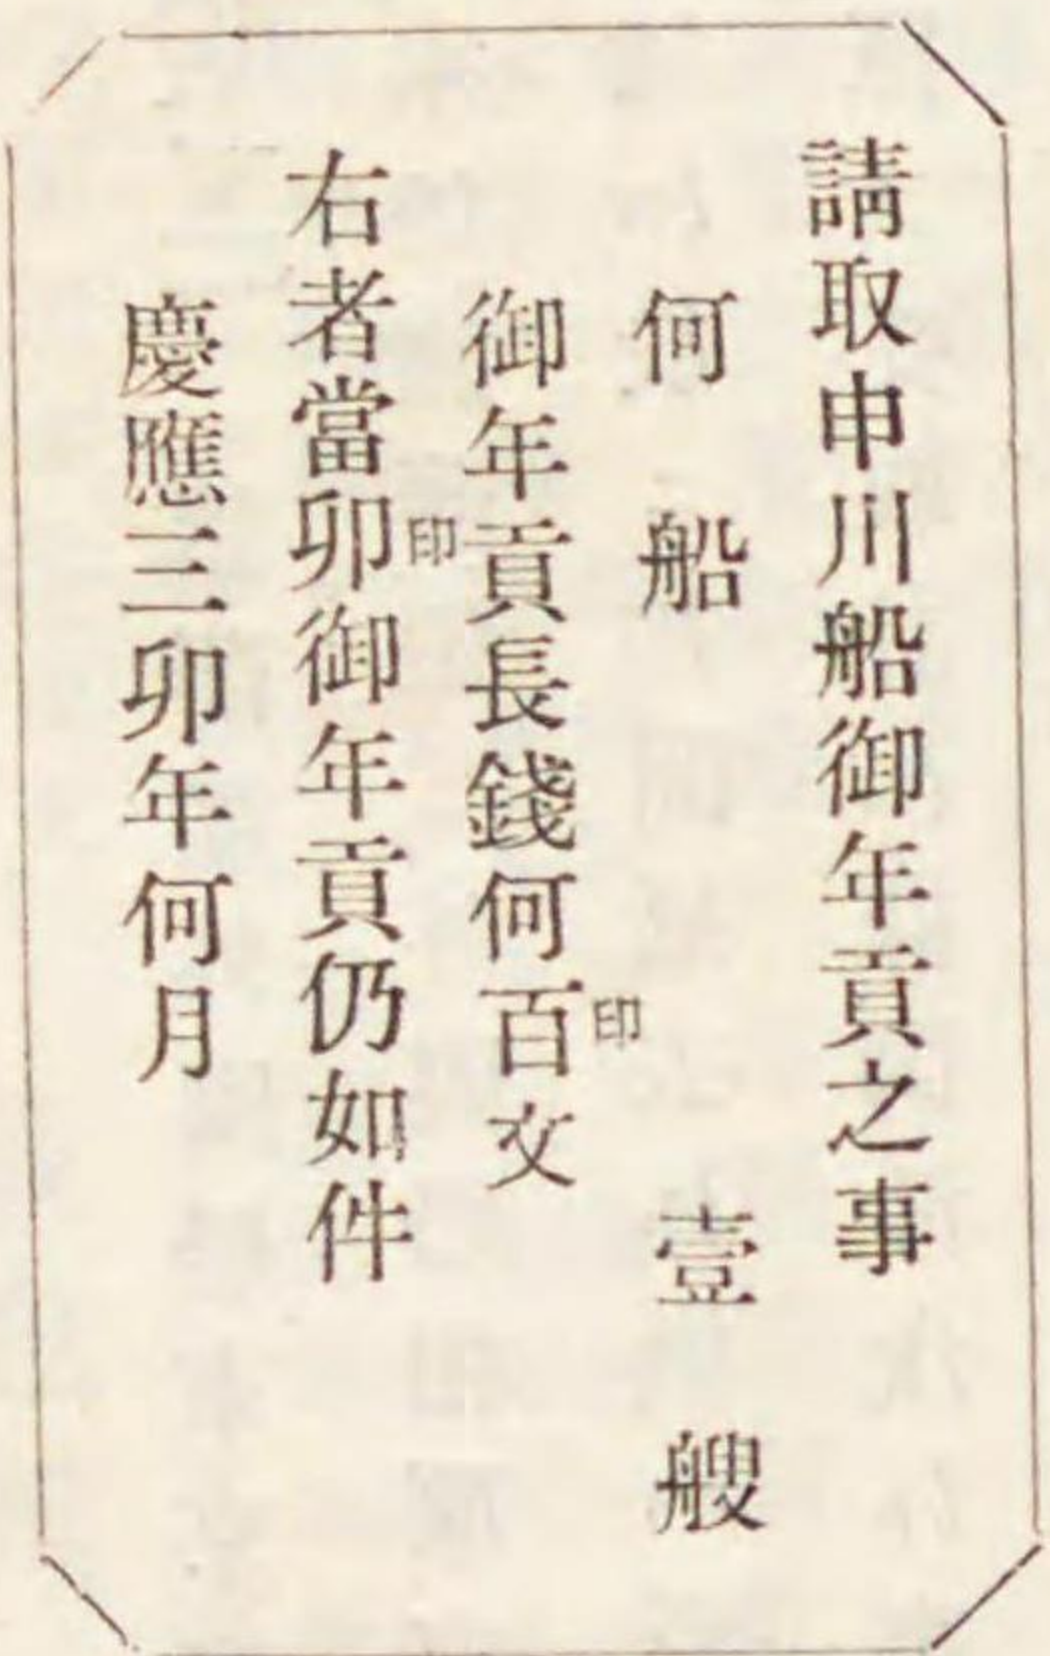 請取申川船御年貢之事
何船壹艘
印
御年貢長錢何百文
印
右者當卯御年貢仍如件
慶應三卯年何月